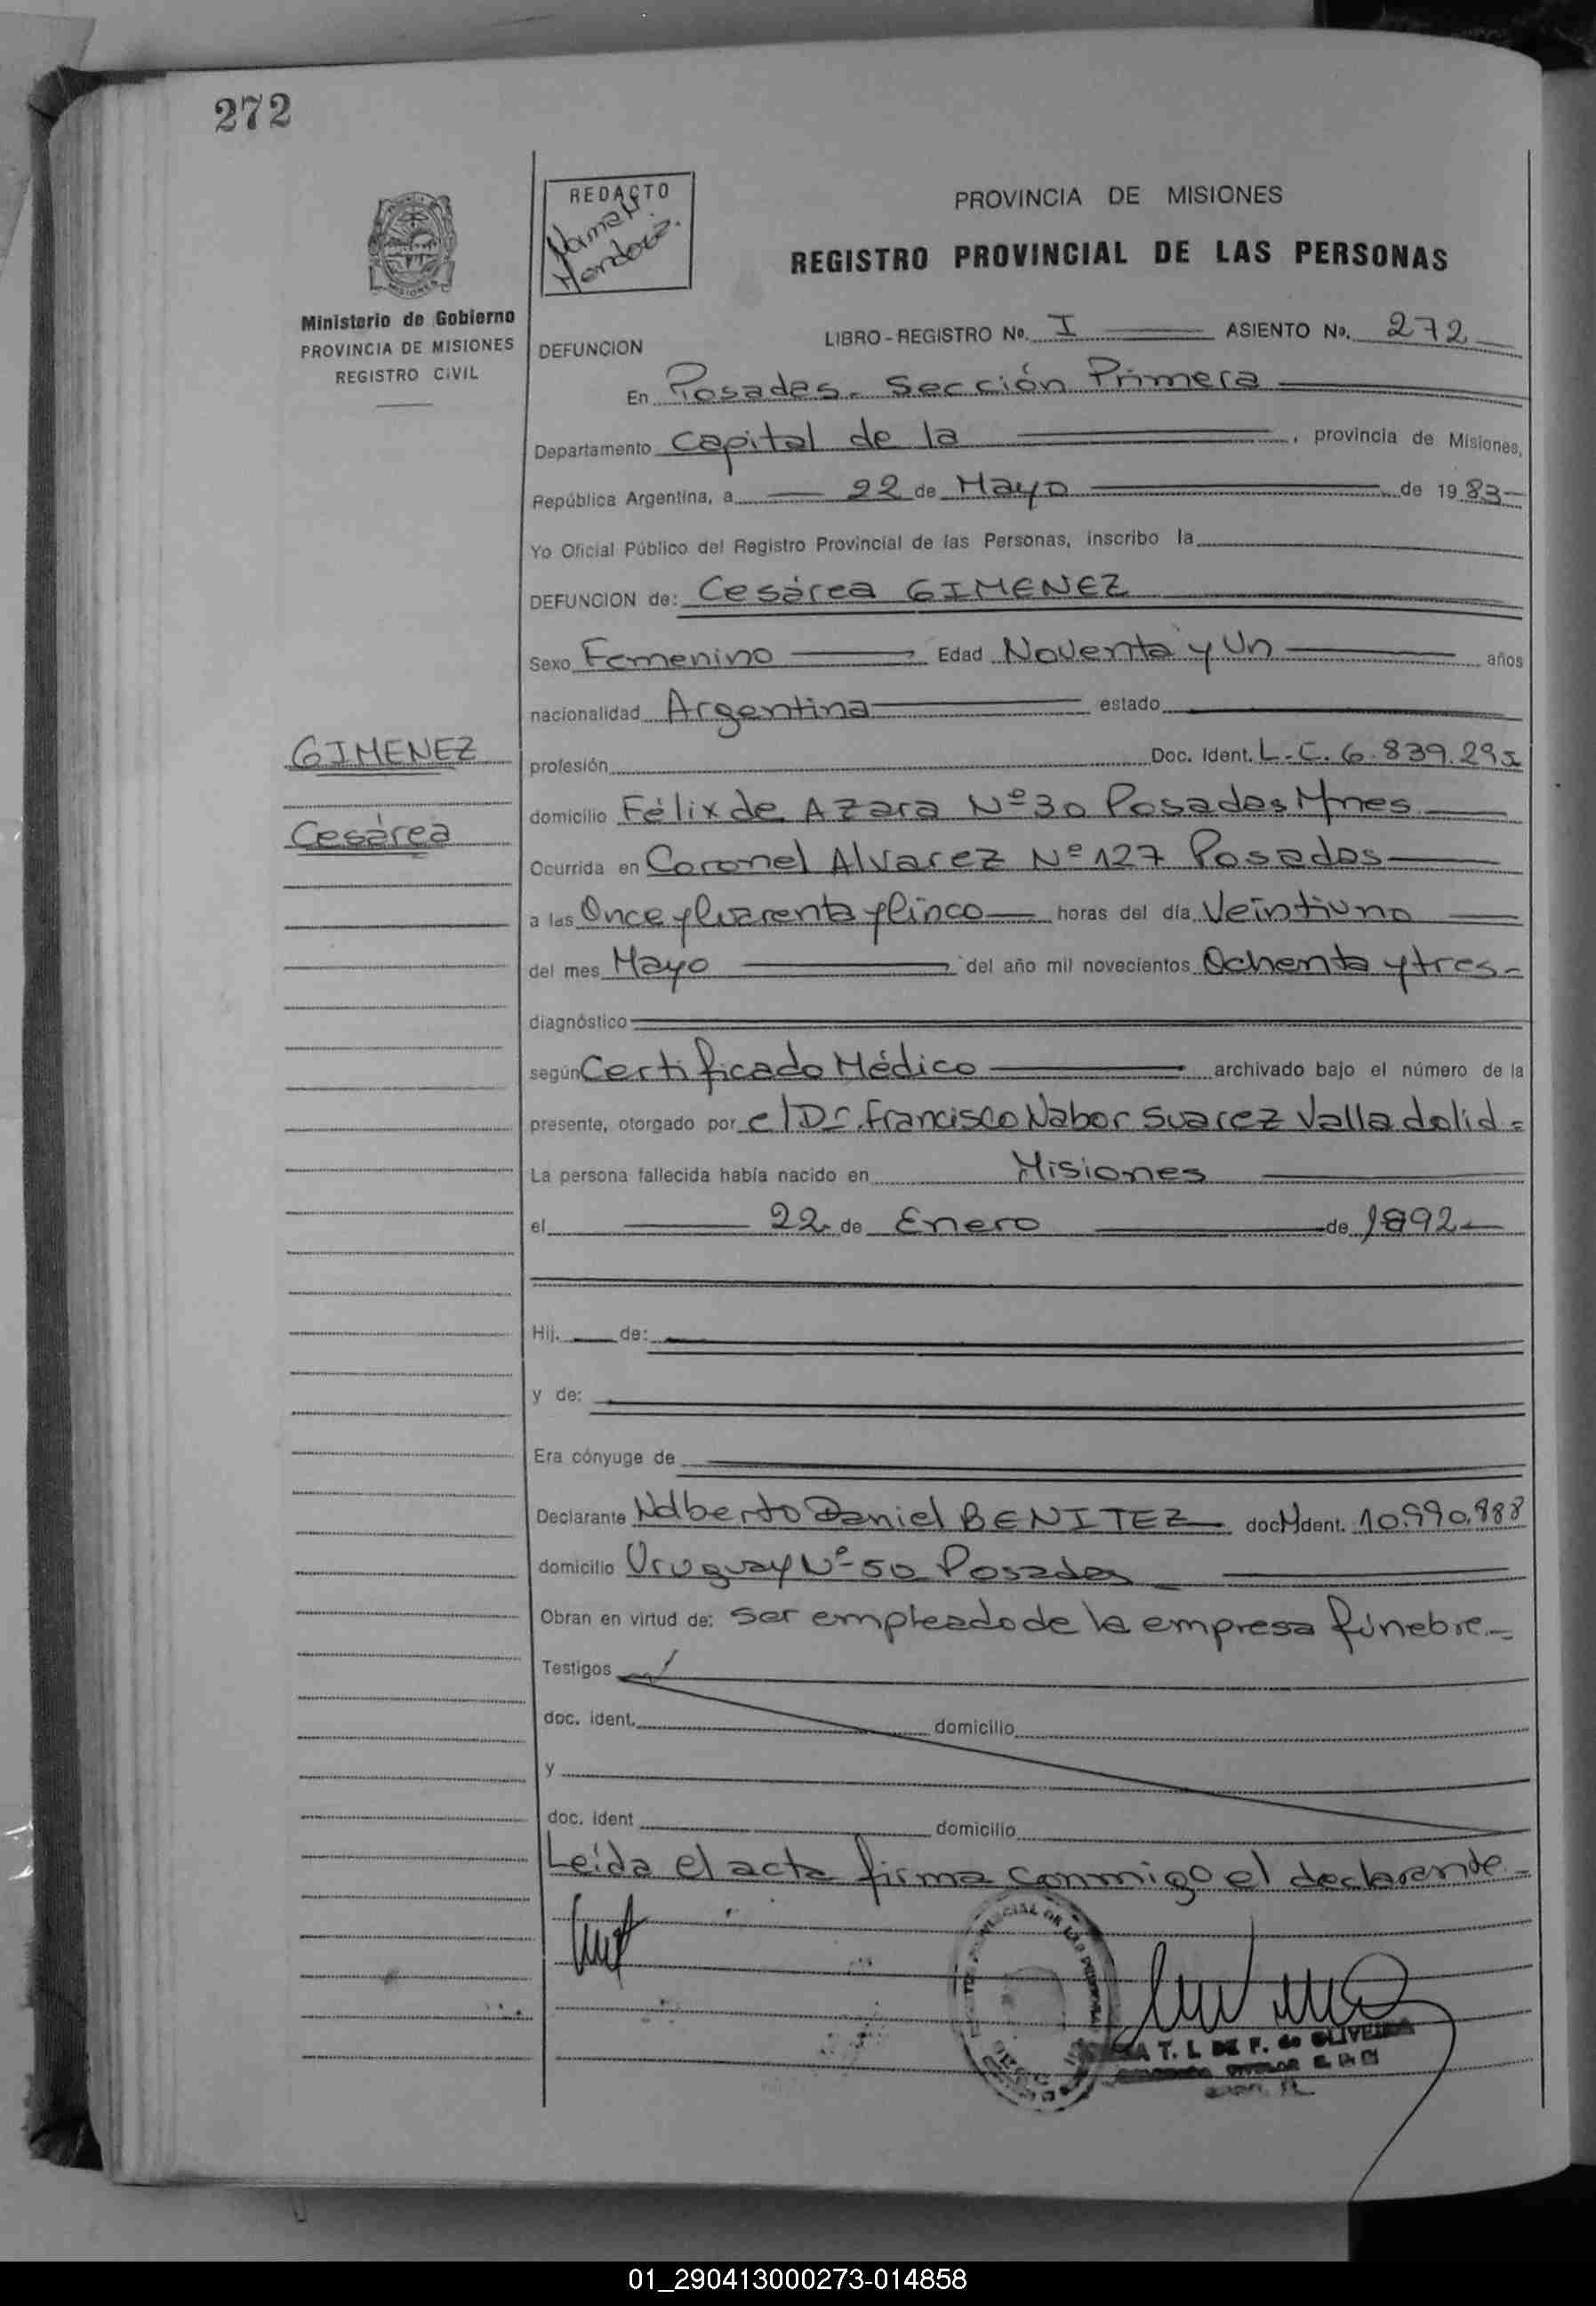 272
REDACTO
PROVINCIA DE MISIONES
REGISTRO PROVINCIAL DE LAS PERSONAS
Ministerio de Gobierno
PROVINCIA DE MISIONES
REGISTRO CIVIL
DEFUNCION LIBRO-REGISTRO No. I ASIENTO No. 272
En Posadas. Sección Primera
Departamento Capital de la , provincia de Misiones,
República Argentina, a 22 de Mayo de 1983
Yo Oficial Público del Registro Provincial de las Personas, inscribo la
DEFUNCION de: Cesárea GIMENEZ
Sexo Femenino Edad Noventa y Un años
nacionalidad Argentina estado
GIMENEZ
Cesárea
profesión Doc. Ident. L.C. 6.839.295
domicilio Félix de Azara Nº 30 Posadas Mnes
Ocurrida en Coronel Alvarez Nº 127 Posados
a las Once y Cuarenta y Cinco horas del día Veintiuno
del mes Mayo del año mil novecientos Ochenta y tres
diagnóstico
según Certificado Médico archivado bajo el número de la
presente, otorgado por el Dr. Francisco Nabor Suarez Valladolid
La persona fallecida había nacido en Misiones
el 22 de Enero de 1892
Hij. de:
y de:
Era cónyuge de
Declarante Nolberto Daniel BENITEZ doc. Ident. 10.990.888
domicilio Uruguay Nº 50 Posadas
Obran en virtud de: Ser empleado de la empresa fúnebre.
Testigos
doc. ident. domicilio
y
doc. ident domicilio
Leída el acta firma conmigo el declarante
T. L. DE F. de OLIVEIRA
01_290413000273-014858